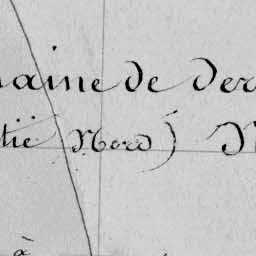 maine de der
tie Nord) N